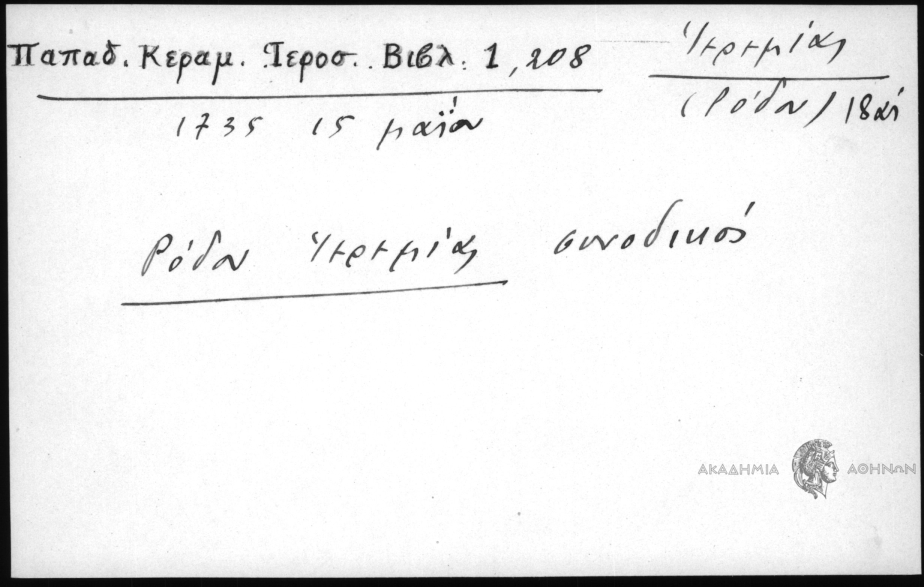 Παπαδ. Κεραμ. Ἱεροσ. Βιβλ. 1, 208
Ἱερεμίας
(Ρόδου) 18αί
1735 15 μαΐου
Ρόδου Ἱερεμίας συνοδικός
ΑΚΑΔΗΜΙΑ ΑΘΗΝΩΝ